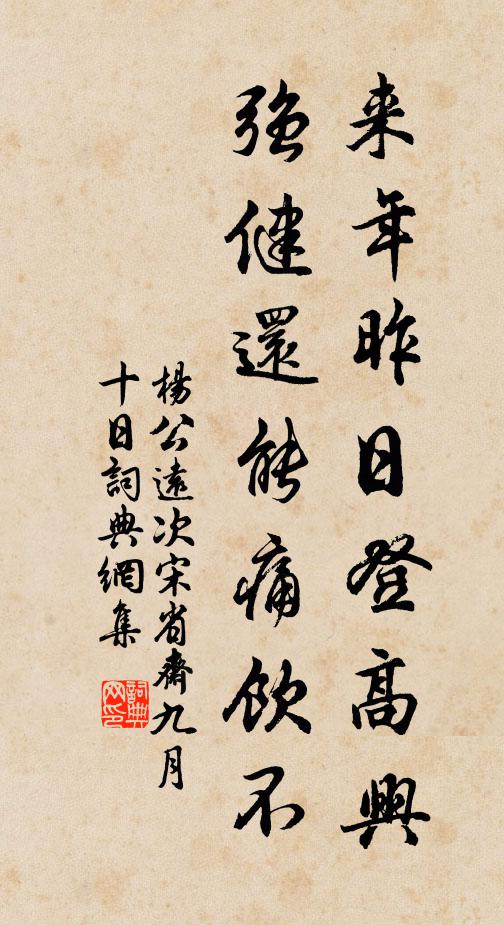 来年昨日登高興
強健還能痛飲不
楊公遠次宋省齋九月
十日詞典網集
詞典
网印